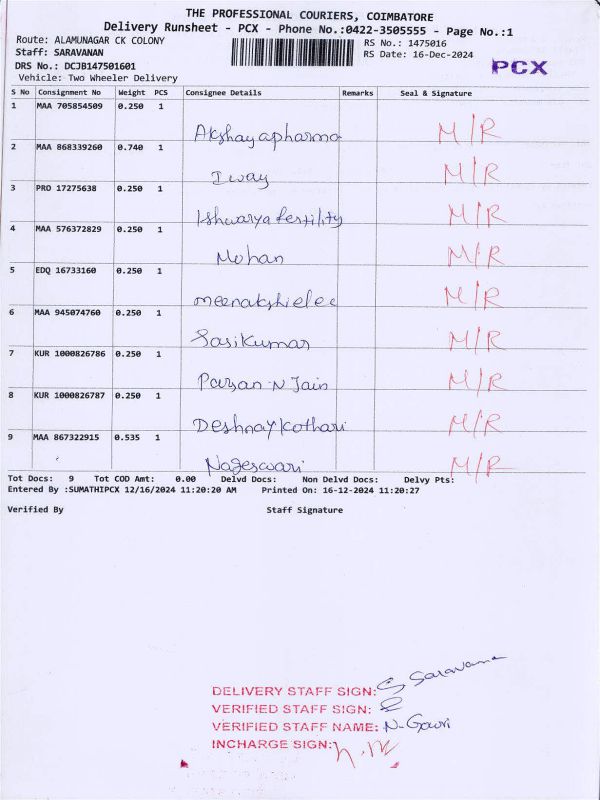 THE PROFESSIONAL COURIERS, COIMBATORE
Delivery Runsheet - PCX - Phone No.:0422-3505555 - Page No.:1
Route: ALAMUNAGAR CK COLONY RS No.: 1475016
Staff: SARAVANAN RS Date: 16-Dec-2024
DRS No.: DCJB147501601 PCX
Vehicle: Two Wheeler Delivery
S No Consignment No Weight PCS Consignee Details Remarks Seal & Signature
1 MAA 705854509 0.250 1
Akshayapharma M/R
2 MAA 868339260 0.740 1
Iway M/R
3 PRO 17275638 0.250 1
Ishwarya fertility M/R
4 MAA 576372829 0.250 1
Mohan M/R
5 EDQ 16733160 0.250 1
meenakshielec M/R
6 MAA 945074760 0.250 1
Sasikumar M/R
7 KUR 1000826786 0.250 1
Parsan N Jain M/R
8 KUR 1000826787 0.250 1
Deshnay Kothari M/R
9 MAA 867322915 0.535 1
Nageswari M/R
Tot Docs: 9 Tot COD Amt: 0.00 Delvd Docs: Non Delvd Docs: Delvy Pts:
Entered By :SUMATHIPCX 12/16/2024 11:20:20 AM Printed On: 16-12-2024 11:20:27
Verified By Staff Signature
DELIVERY STAFF SIGN: Saravana
VERIFIED STAFF SIGN:
VERIFIED STAFF NAME: N-Gowri
INCHARGE SIGN: